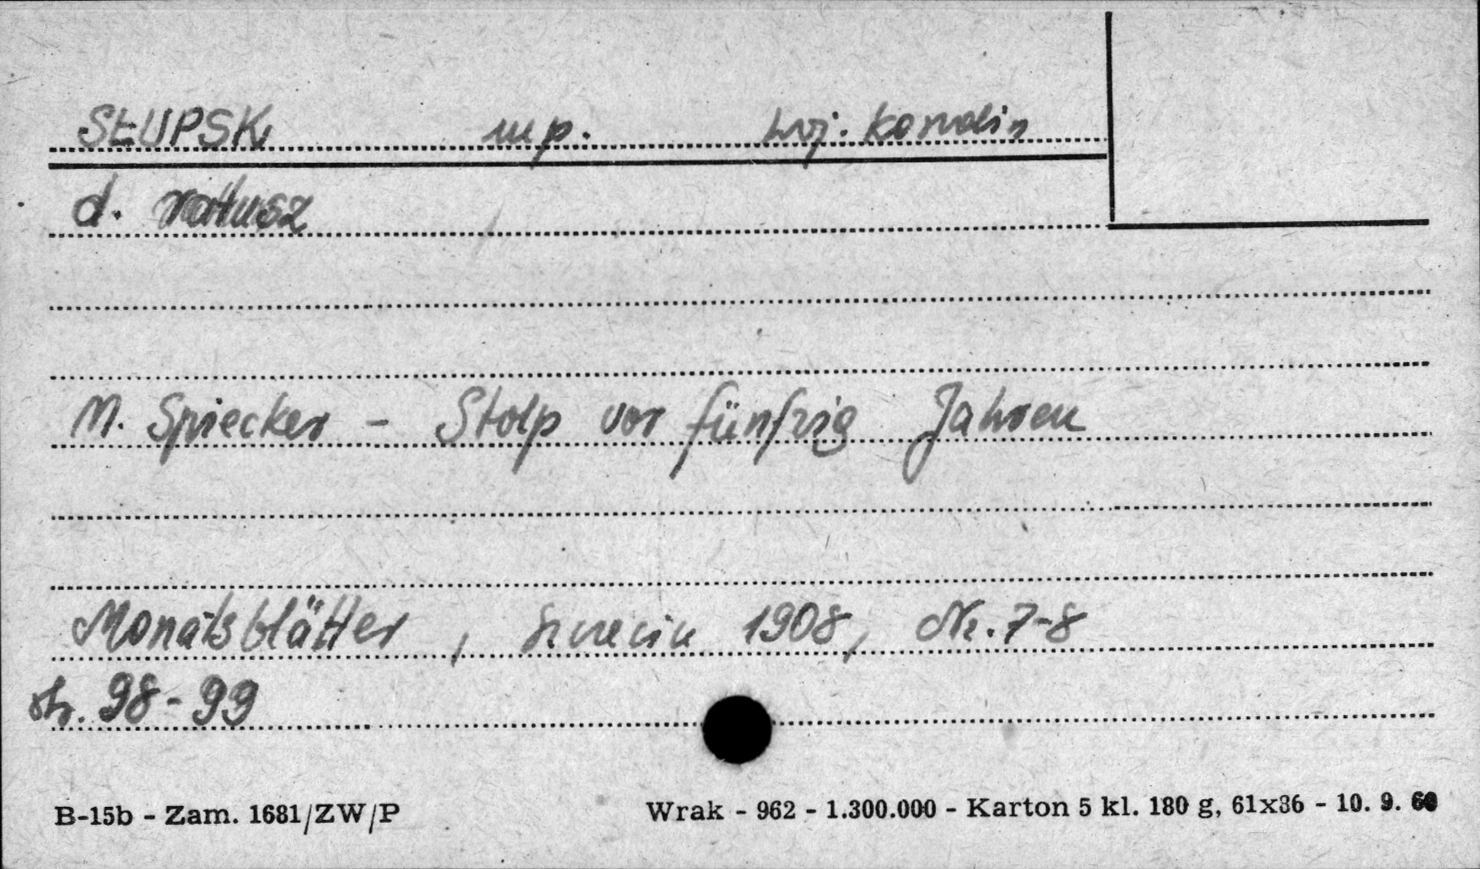 SŁUPSK mp. woj. koszalin
d. ratusz
M. Spiecker - Stolp vor fünfzig Jahren
Monatsblätter, Szczecin 1908, Nr. 7-8
str. 98-99
B-15b - Zam. 1681/ZW/P Wrak - 962 - 1.300.000 - Karton 5 kl. 180 g, 61x86 - 10. 9. 60